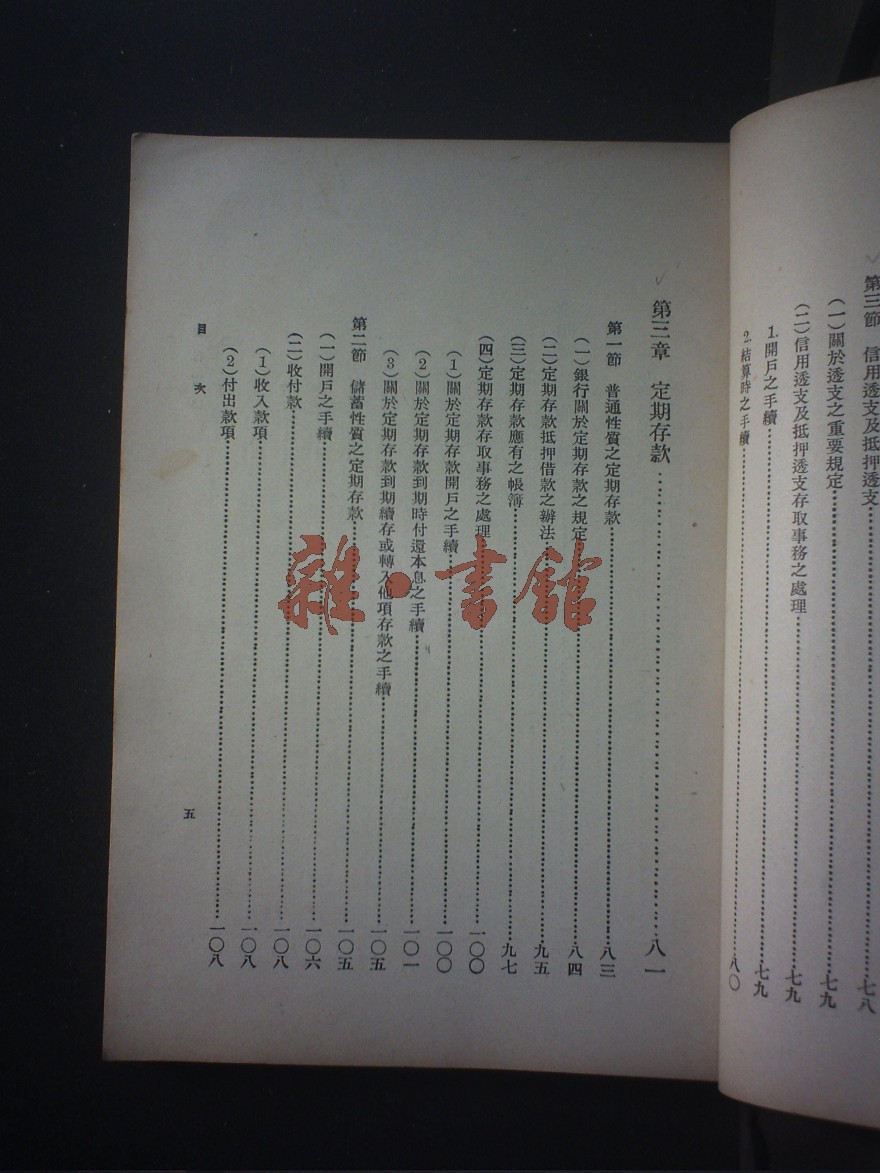 第三節　信用透支及抵押透支……七八
（一）關於透支之重要規定……七九
（二）信用透支及抵押透支存取事務之處理……七九
1.開戶之手續……七九
2.結算時之手續……八〇
第三章　定期存款……八一
第一節　普通性質之定期存款……八三
（一）銀行關於定期存款之規定……八四
（二）定期存款抵押借款之辦法……九五
（三）定期存款應有之帳簿……九七
（四）定期存款存取事務之處理……一〇〇
（1）關於定期存款開戶之手續……一〇〇
（2）關於定期存款到期時付還本息之手續……一〇一
（3）關於定期存款到期續存或轉入他項存款之手續……一〇五
第二節　儲蓄性質之定期存款……一〇五
（一）開戶之手續……一〇六
（二）收付款……一〇八
（1）收入款項……一〇八
（2）付出款項……一〇八
目次
五
雜·書館